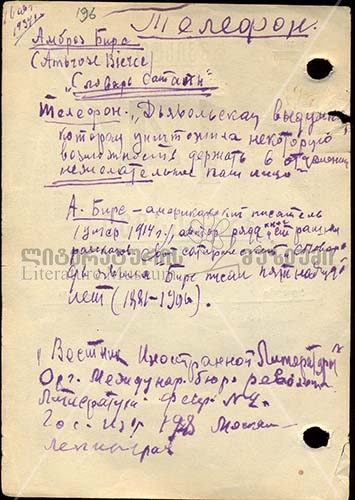 196
Телефон.
Амброз Бирс
(Ambrose Bierce)
"Словарь Сатаны"
Телефон. "Дьявольская выдумка
которая уничтожила некоторую
возможность держать в отдалении
нежелательное нам лицо"
А. Бирс – американский писатель
/умер 1914 г./ автор ряда
рассказов
ლიტერატურის მუზეუმი
Literature Museum
Бирс писал пятнадцать
лет (1881–1906).
"Вестник Иностранной Литературы"
Орг. Междунар. бюро революц.
Литературы февр. № 2.
Гос. Изд. 1928 Москва –
Ленинград